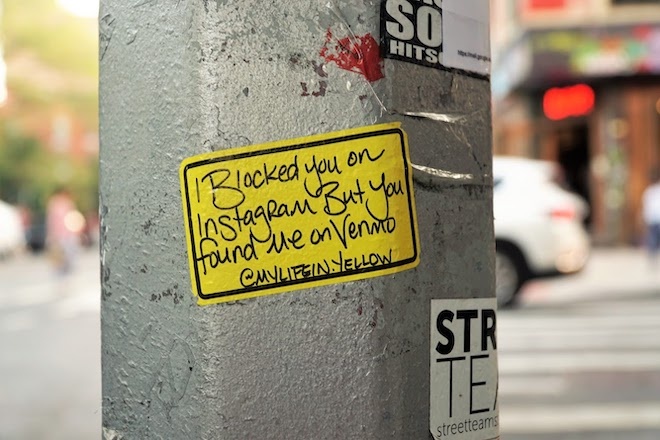 SO
HITS
I Blocked you on
Instagram But you
found me on Venmo
@MYLIFEIN.YELLOW
STR
TE
streetteam